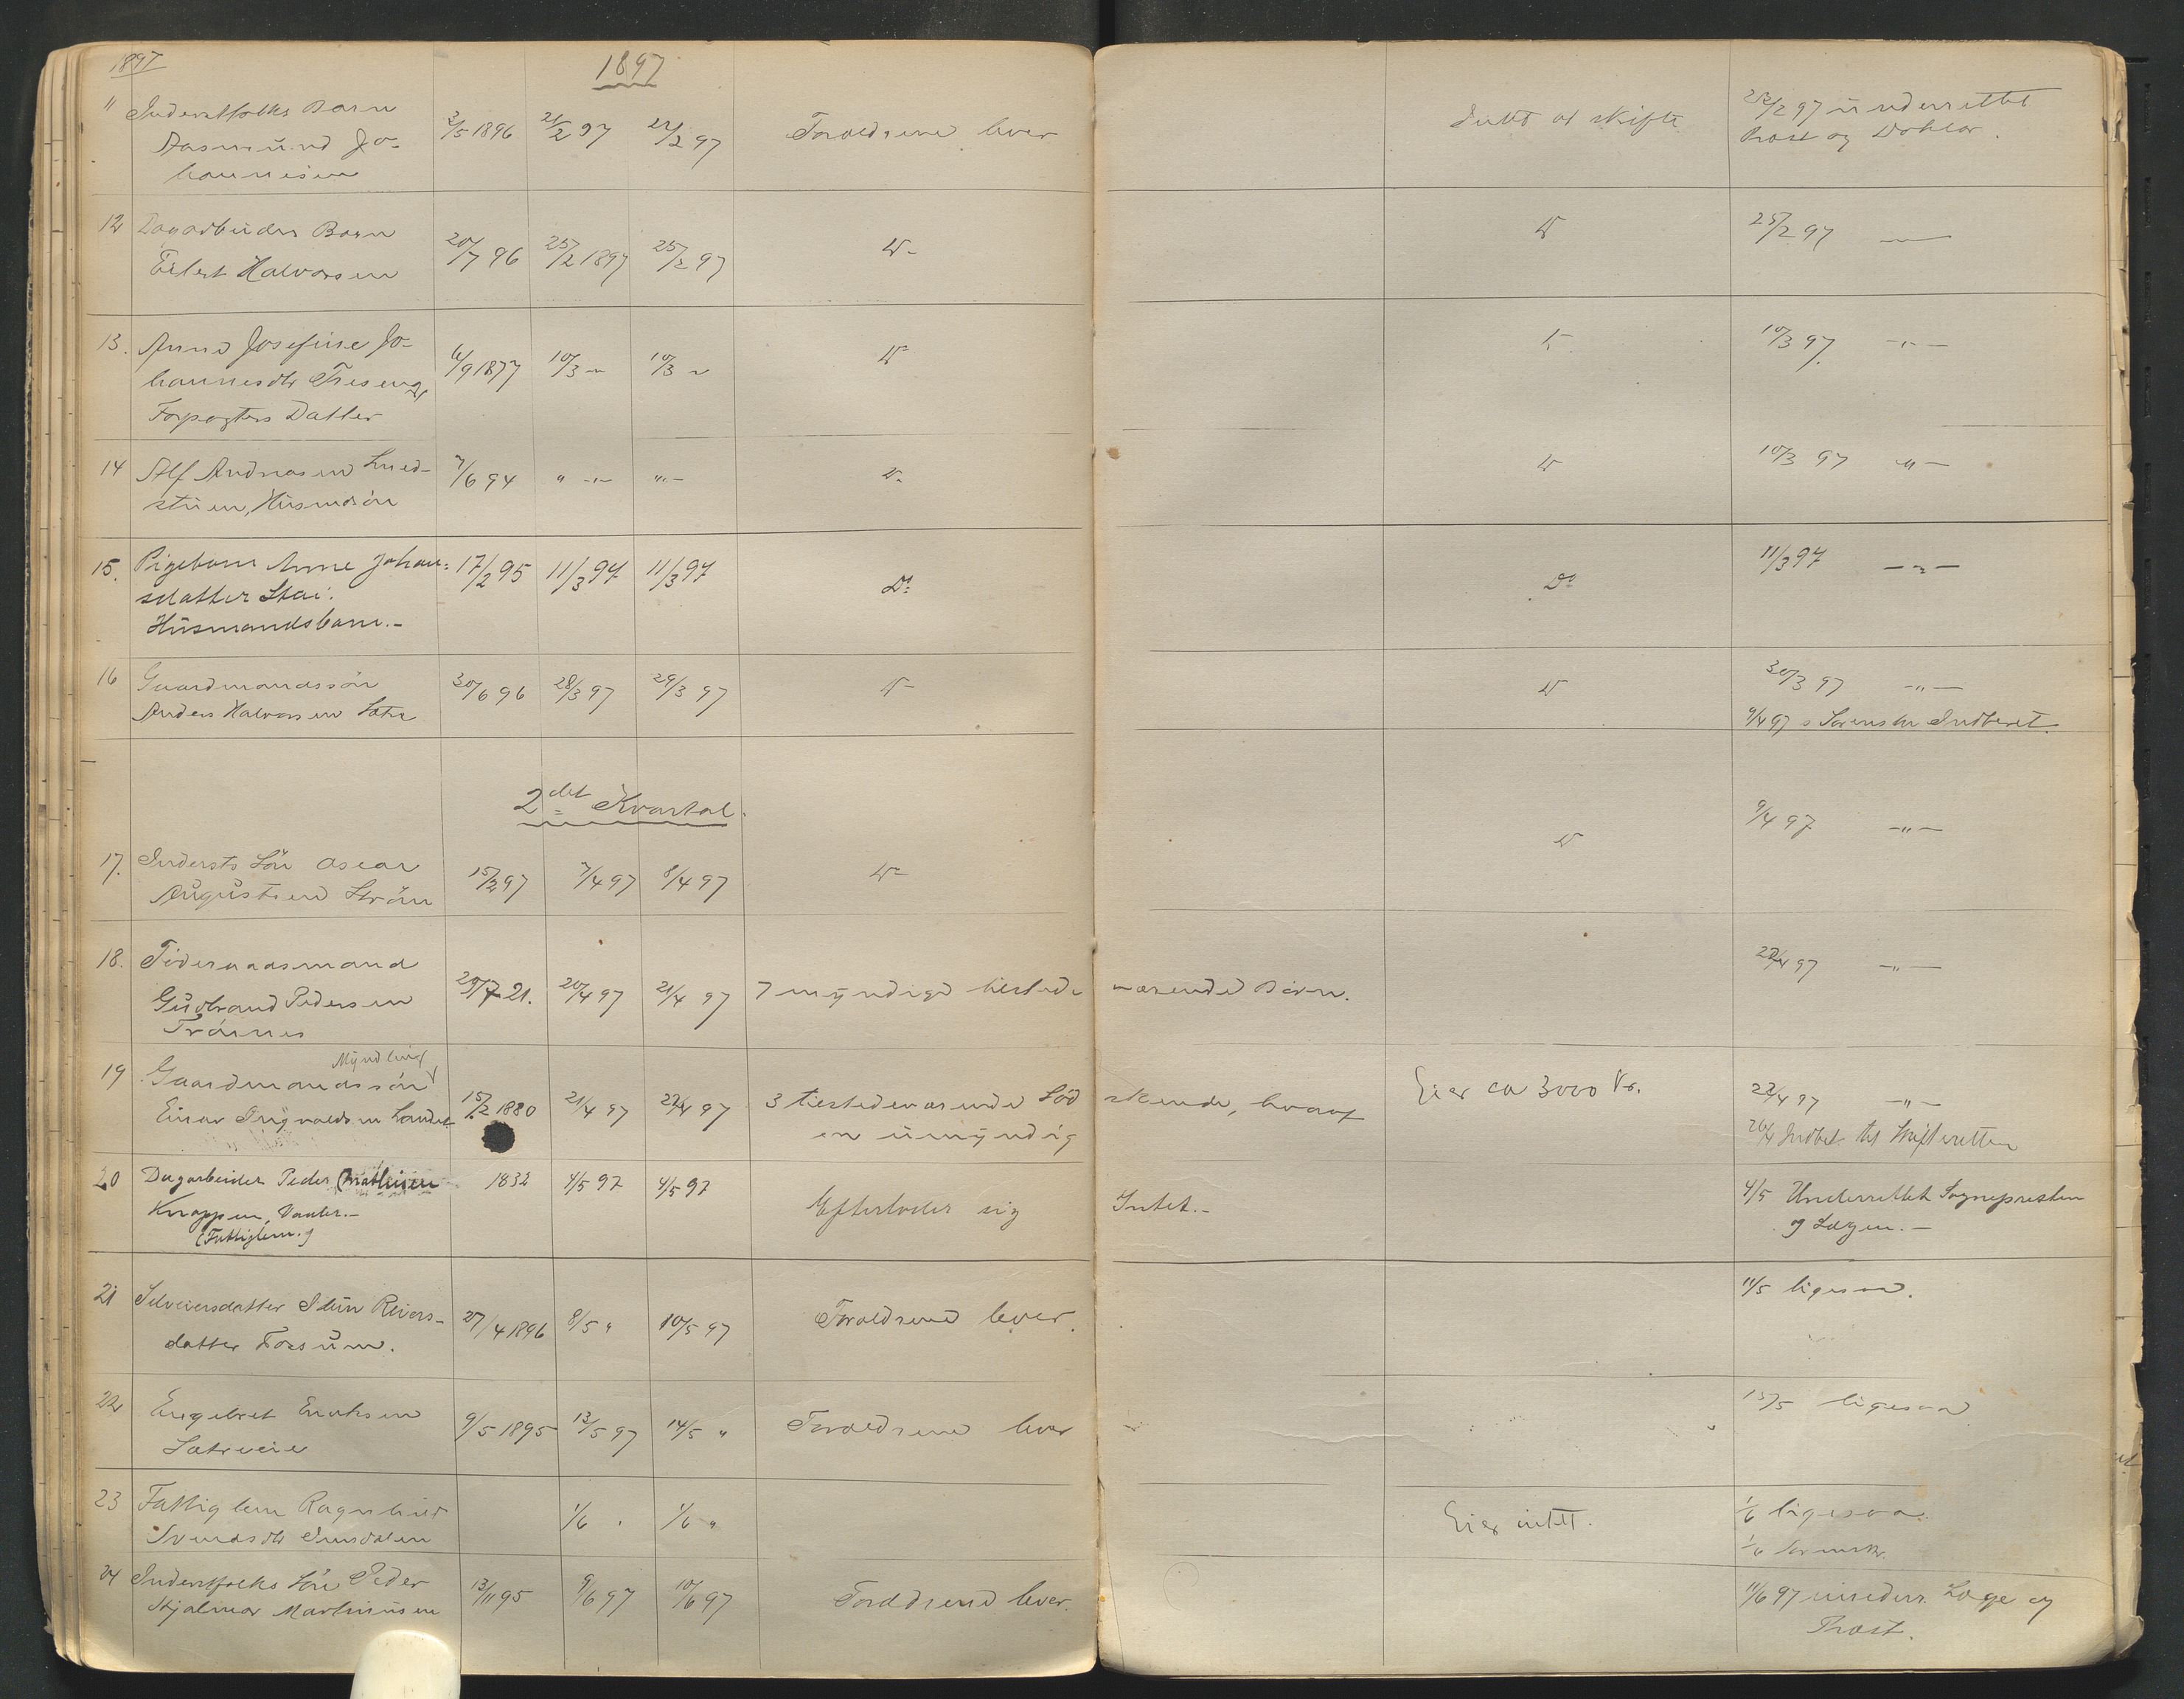 1897
1897
11 Inderstfolks Barn
Aasmund Jo-
hannesen
2/5 1896 21/2 97 22/2 97 Forældrene lever
Intet at skifte
25/2 97 underrettet
Prost og Doktor.
12 Dagarbeiders Barn
Eilert Halvorsen
20/7 96 25/2 1897 25/2 97 Do
Do
25/2 97 —
13. Anne Josefine Jo-
hannesdtr
Forpagters Datter
6/9 1877 10/3 " 10/3 " Do
Do
10/3 97. - " -
14 Alf Andreasen
stuen, Husmdsön
7/6 94 " - " - " - Do
Do
10/3 97 - " -
15. Pigebarn Anne Johan-
sdatter Stai.
Husmandsbarn.-
17/2 95 11/3 97 11/3 97 Do
Do
11/3 97 - " -
16 Gaardmandssön
Anders Halvorsen Sætre
30/6 96 28/3 97 29/3 97 Do
Do
30/3 97 - " -
9/4 97 Indberet.
2det Kvartal.
17. Indersts Sön Oscar
Augustsen Ström
15/3 97 7/4 97 8/4 97 Do
Do
9/4 97 - " -
18. Föderaadsmand
Gudbrand Pedersen
Trannes
29/7 21. 20/4 97 21/4 97 7 myndige tilstede værende Börn.
22/4 97 - " -
19 Myndling
Gaardmandssön
Einar Trygvaldsen Landet
15/2 1880 21/4 97 22/4 97 3 tilstedeværende Söd skende, hvoraf
en umyndig
Eier ca 3000 Kr.
22/4 97 - " -
26/4 Indbet. til Skifteretten
20 Dagarbeider Peder Mathisen
Knappen, Vaaler.-
(Fattiglem.)
1832 4/5 97 4/5 97 Efterlader sig Intet.-
4/5 Underrettet Sognepresten
og Lægen.-
21 Selveiersdatter Stein Reiers-
datter Fossum.
27/4 1896 8/5 " 10/5 97 Forældrene lever.
11/5 ligesaa.
22 Engebret Eriksen
Sætreeie
9/5 1895 13/5 97 14/5 " Forældrene lever
15/5 ligesaa
23 Fattiglem Ragnhild
Svendsdtr
1/6 " 1/6 "
Eier intet.
1/6 ligesaa.
1/6 Sorenskr.
24 Inderstfolks Sön Peder
Hjalmar Martinusen
13/11 95 9/6 97 10/6 97 Forældrene lever.
11/6 97 underr. Læge og
Prost.